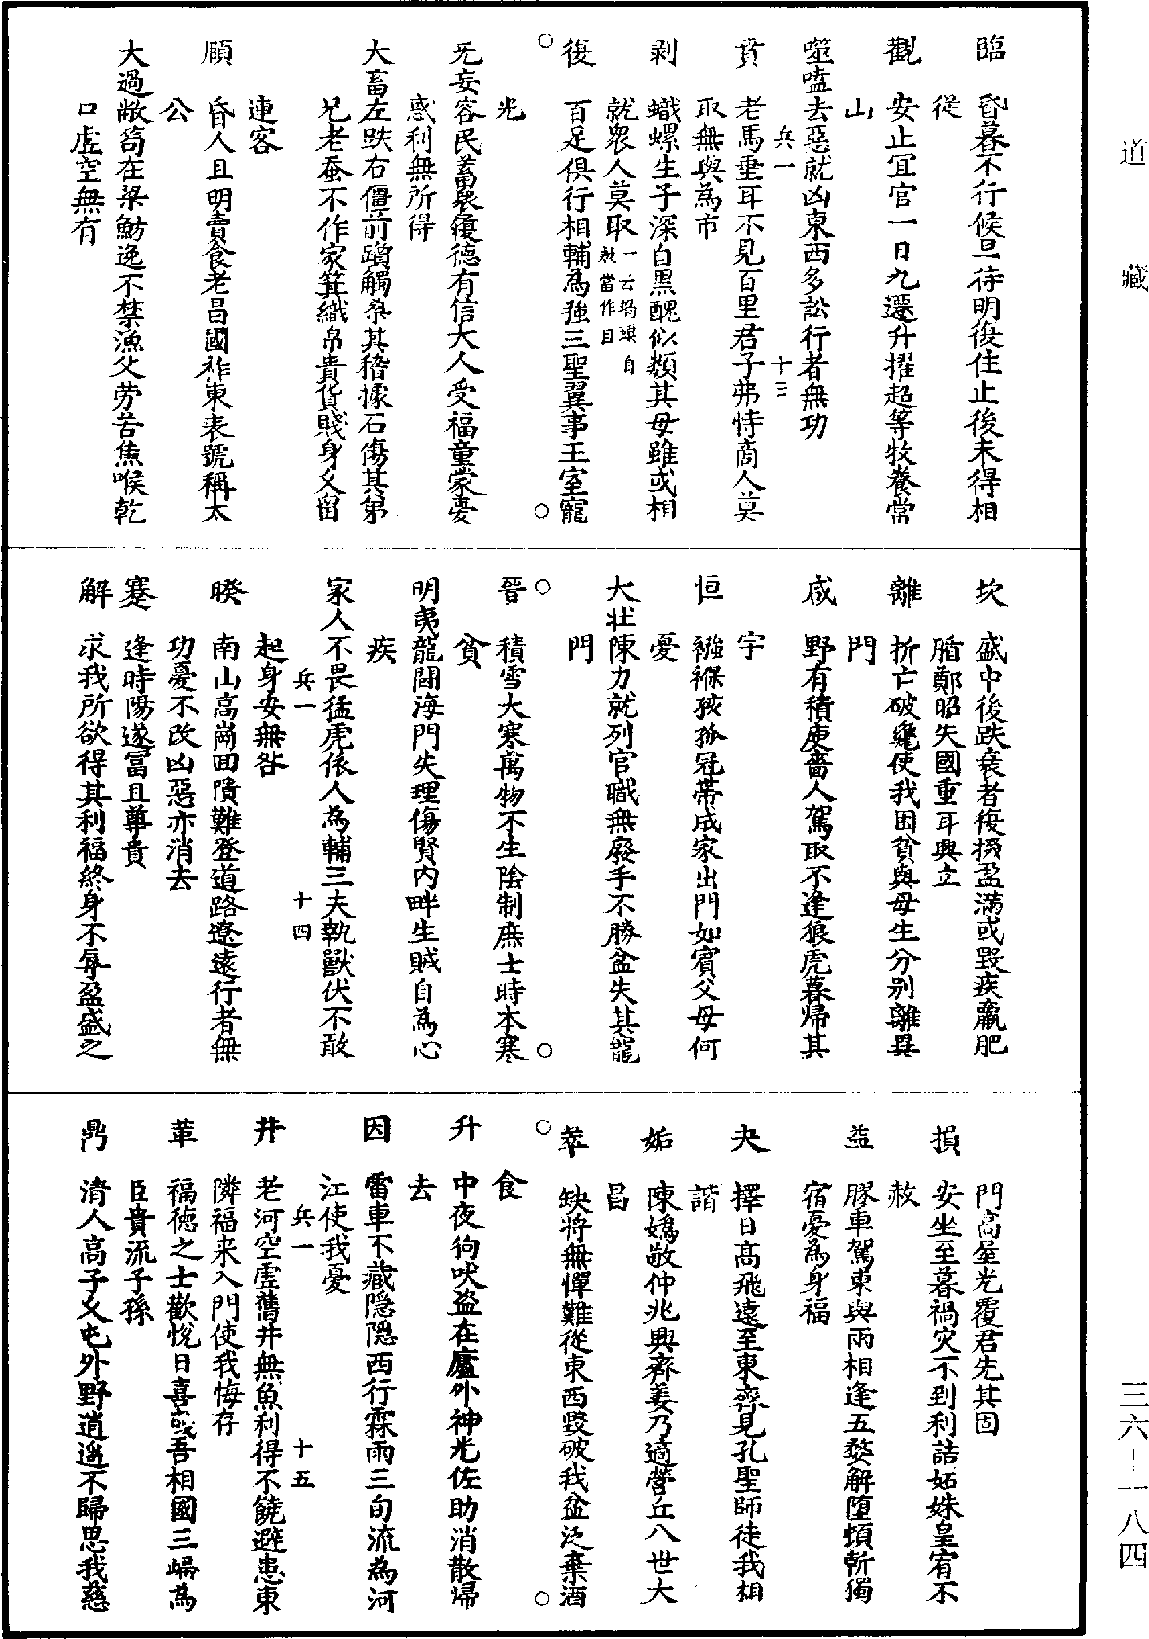 道藏
臨 昏暮不行候旦待明復住止後未得相
從
觀 安止宜官一日九遷升擢超等牧養常
山
噬嗑去惡就凶東西多訟行者無功
兵一 十三
賁 老馬垂耳不見百里君子弗恃商人莫
取無與為市
剥 蟻螺生子深白黑醜似類其母雖或相
就衆人莫取
復 百足俱行相輔為強三聖翼事王室寵
光
无妄容民蓄衆復德有信大人受福童蒙憂
惑利無所得
大畜左跌右僵前躓觸桑其稽據石傷其第
兄老蚕不作家箕織帛貴貨賤身久留
連客
頤 昏人且明賣食老昌國祚東表號稱太
公
大過敝笱在梁魴逸不禁漁父勞苦焦喉乾
口虛空無有
坎 盛中後跌衰者復掇盈滿或毀疾羸肥
腯鄭昭失國重耳興立
離 折亡破甕使我困貧與母生分别離異
門
咸 野有積庾嗇人駕取不逢狼虎暮歸其
宇
恒 襁褓孩孤冠帶成家出門如賓父母何
憂
大壮陳力就列官職無廢手不勝盆失其寵
門
晉 積雪大寒萬物不生陰制庶士時本寒
貧
明夷龍鬭海門失理傷賢内畔生賊自為心
疾
家人不畏猛虎依人為輔三夫執獸伏不敢
兵一 十四
起身安無咎
睽 南山高崗回隤難登道路遼遠行者無
功憂不改凶惡亦消去
蹇 逢時陽遂富且尊貴
解 求我所欲得其利福終身不辱盈盛之
門高屋光覆君先其固
損 安坐至暮禍灾不到利詰妬姝皇宥不
赦
益 膠車駕東與雨相逢五婺解墮頓斬獨
宿憂為身福
夬 擇日高飛遠至東齊見孔聖師徒我相
諧
姤 陳嬀敬仲兆興齊姜乃適營丘八世大
昌
萃 缺將無憚難從東西毀破我盆泛棄酒
食
升 中夜狗吠盗在廬外神光佐助消散歸
去
因 雷車不藏隠隠西行霖雨三旬流為河
江使我憂
兵一 十五
井 老河空虛舊井無魚利得不饒避患東
隣福來入門使我悔存
革 福德之士歡悅日喜或吾相國三歸為
臣貴流子孫
鼎 清人高子久屯外野逍遥不歸思我慈
三六-一八四